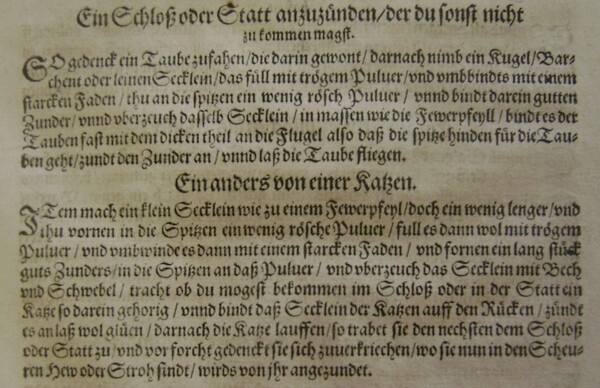 Ein Schloß oder Statt anzuzünden/der du sonst nicht
zu kommen magst.
SO gedenck ein Taube zufahen/die darin gewont/darnach nimb ein Kugel/Bar-
chent oder leinen Secklein/das füll mit trögem Puluer/vnd vmbbindts mit einem
starcken Faden/thu an die spitzen ein wenig rösch Puluer/vnnd bindt darein gutten
Zunder/vnnd vberzeuch dasselb Secklein/in massen wie die Fewerpfeyll/bindt es der
Tauben fast mit dem dicken theil an die Flugel also daß die spitze hinden für die Tau-
ben geht/zundt den Zunder an/vnnd laß die Taube fliegen.
Ein anders von einer Katzen.
ITem mach ein klein Secklein wie zu einem Fewerpfeyl/doch ein wenig lenger/vnd
thu vornen in die Spitzen ein wenig rösche Puluer/full es dann wol mit trögem
Puluer/vnd vmbwinde es dann mit einem starcken Faden/vnd fornen ein lang stück
guts Zunders/in die Spitzen an daß Puluer/vnd vberzeuch das Secklein mit Bech
vnd Schwebel/tracht ob du mogest bekommen im Schloß oder in der Statt ein
Katze so darein gehorig/vnnd bindt daß Secklein der Katzen auff den Rücken/zündt
es an laß wol glüen/darnach die Katze lauffen/so trabet sie den nechsten dem Schloß
oder Statt zu/vnd vor forcht gedenckt sie sich zuuerkriechen/wo sie nun in den Scheu-
ren Hew oder Stroh findt/wirds von jhr angezundet.